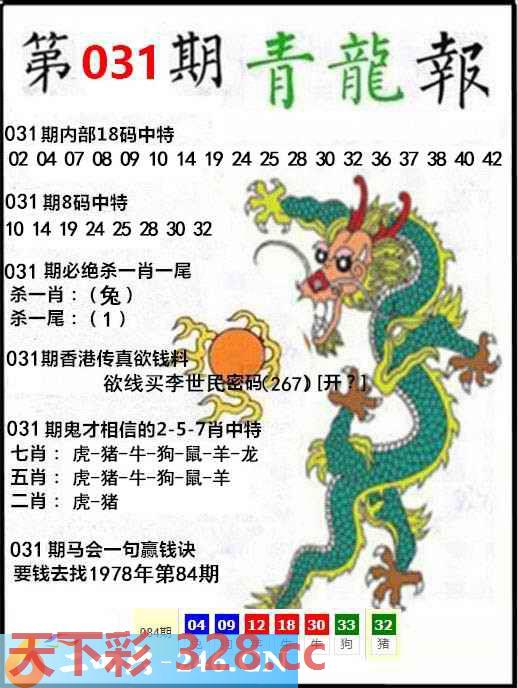 第031期青龍報
031期内部18码中特
02 04 07 08 09 10 14 19 24 25 28 30 32 36 37 38 40 42
031期8码中特
10 14 19 24 25 28 30 32
031期必绝杀一肖一尾
杀一肖：(兔)
杀一尾：(1)
031期香港传真欲钱料
欲线买李世民密码(267)[开?]
031期鬼才相信的2-5-7肖中特
七肖：虎-猪-牛-狗-鼠-羊-龙
五肖：虎-猪-牛-狗-鼠-羊
二肖：虎-猪
031期马会一句赢钱诀
要钱去找1978年第84期
084期 04 09 12 18 30 33 32
牛 猪
天下彩 328.cc